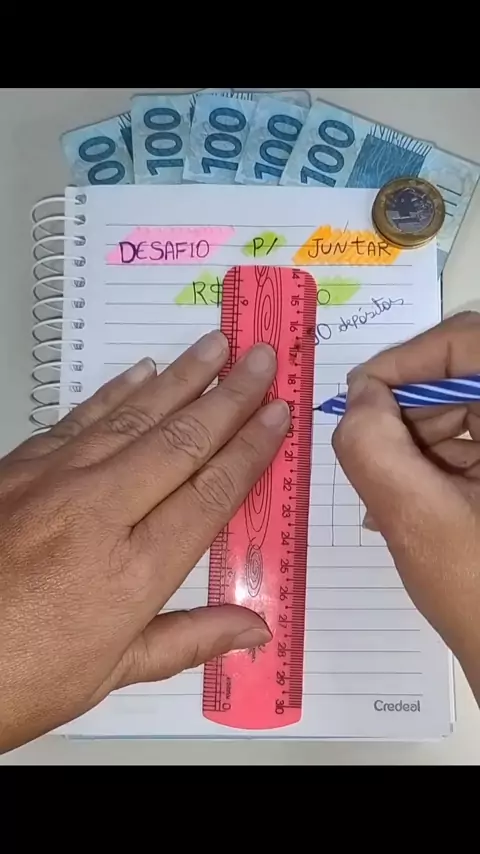 100 100 100 100
DESAFIO P/ JUNTAR
R$
depósitos
14 15 16 17 18
21 22 23 24 25 26 27 28 29 30
0
Credeal